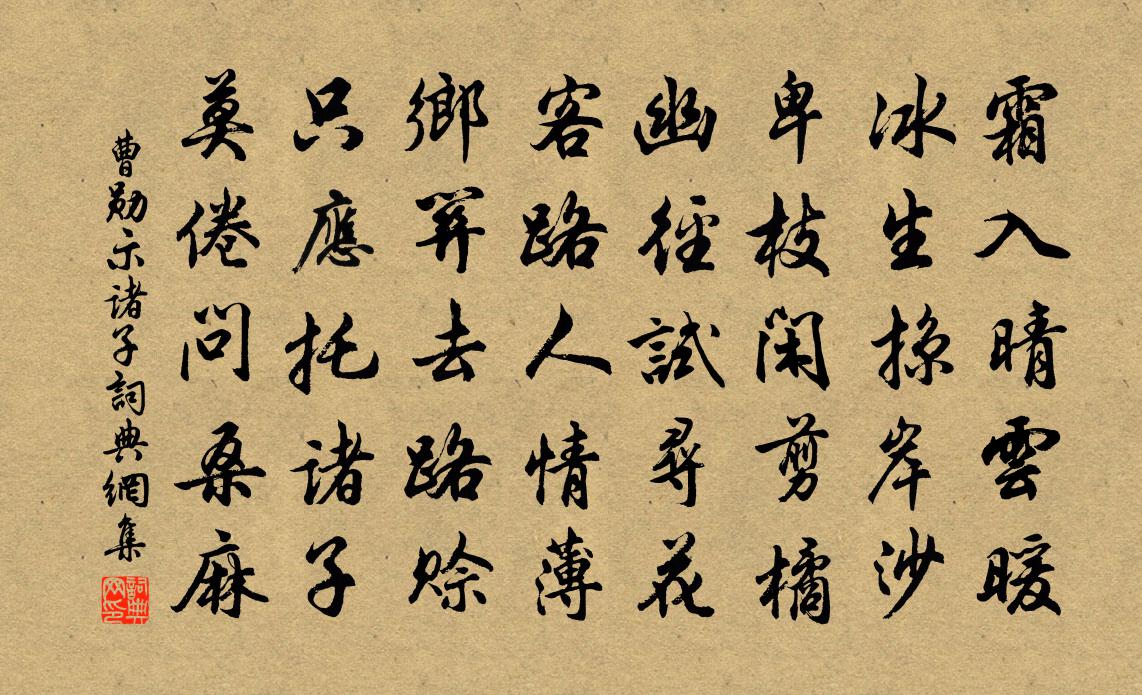 霜入晴雲暖
冰生掠岸沙
卑枝閑剪橘
幽徑試尋花
客路人情薄
鄉關去路賒
只應托諸子
莫倦問桑麻
曹勛示諸子詞典網集
詞典網印